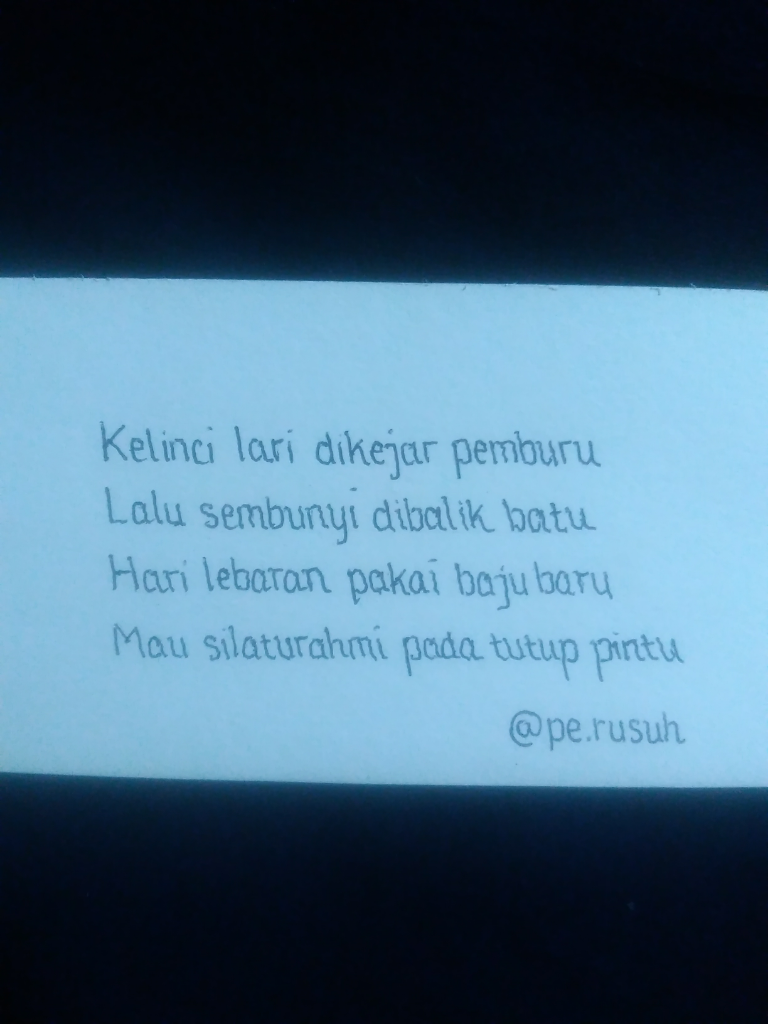 Kelinci lari dikejar pemburu
Lalu sembunyi dibalik batu
Hari lebaran pakai baju baru
Mau silaturahmi pada tutup pintu
@pe.rusuh